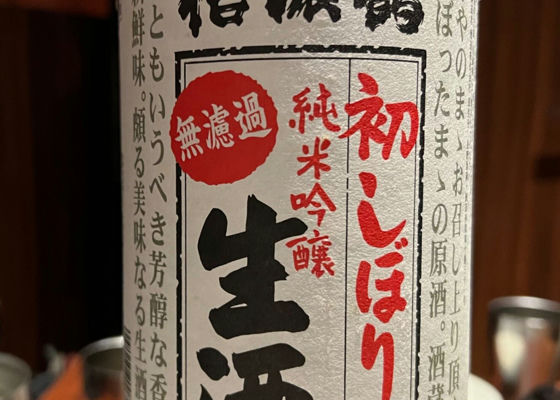 やのまゝお召し上り頂
ぼったまゝの原酒。酒蔵
初しぼり
純米吟醸
無濾過
生酒
ともいうべき芳醇な香
新鮮味。頗る美味なる生酒